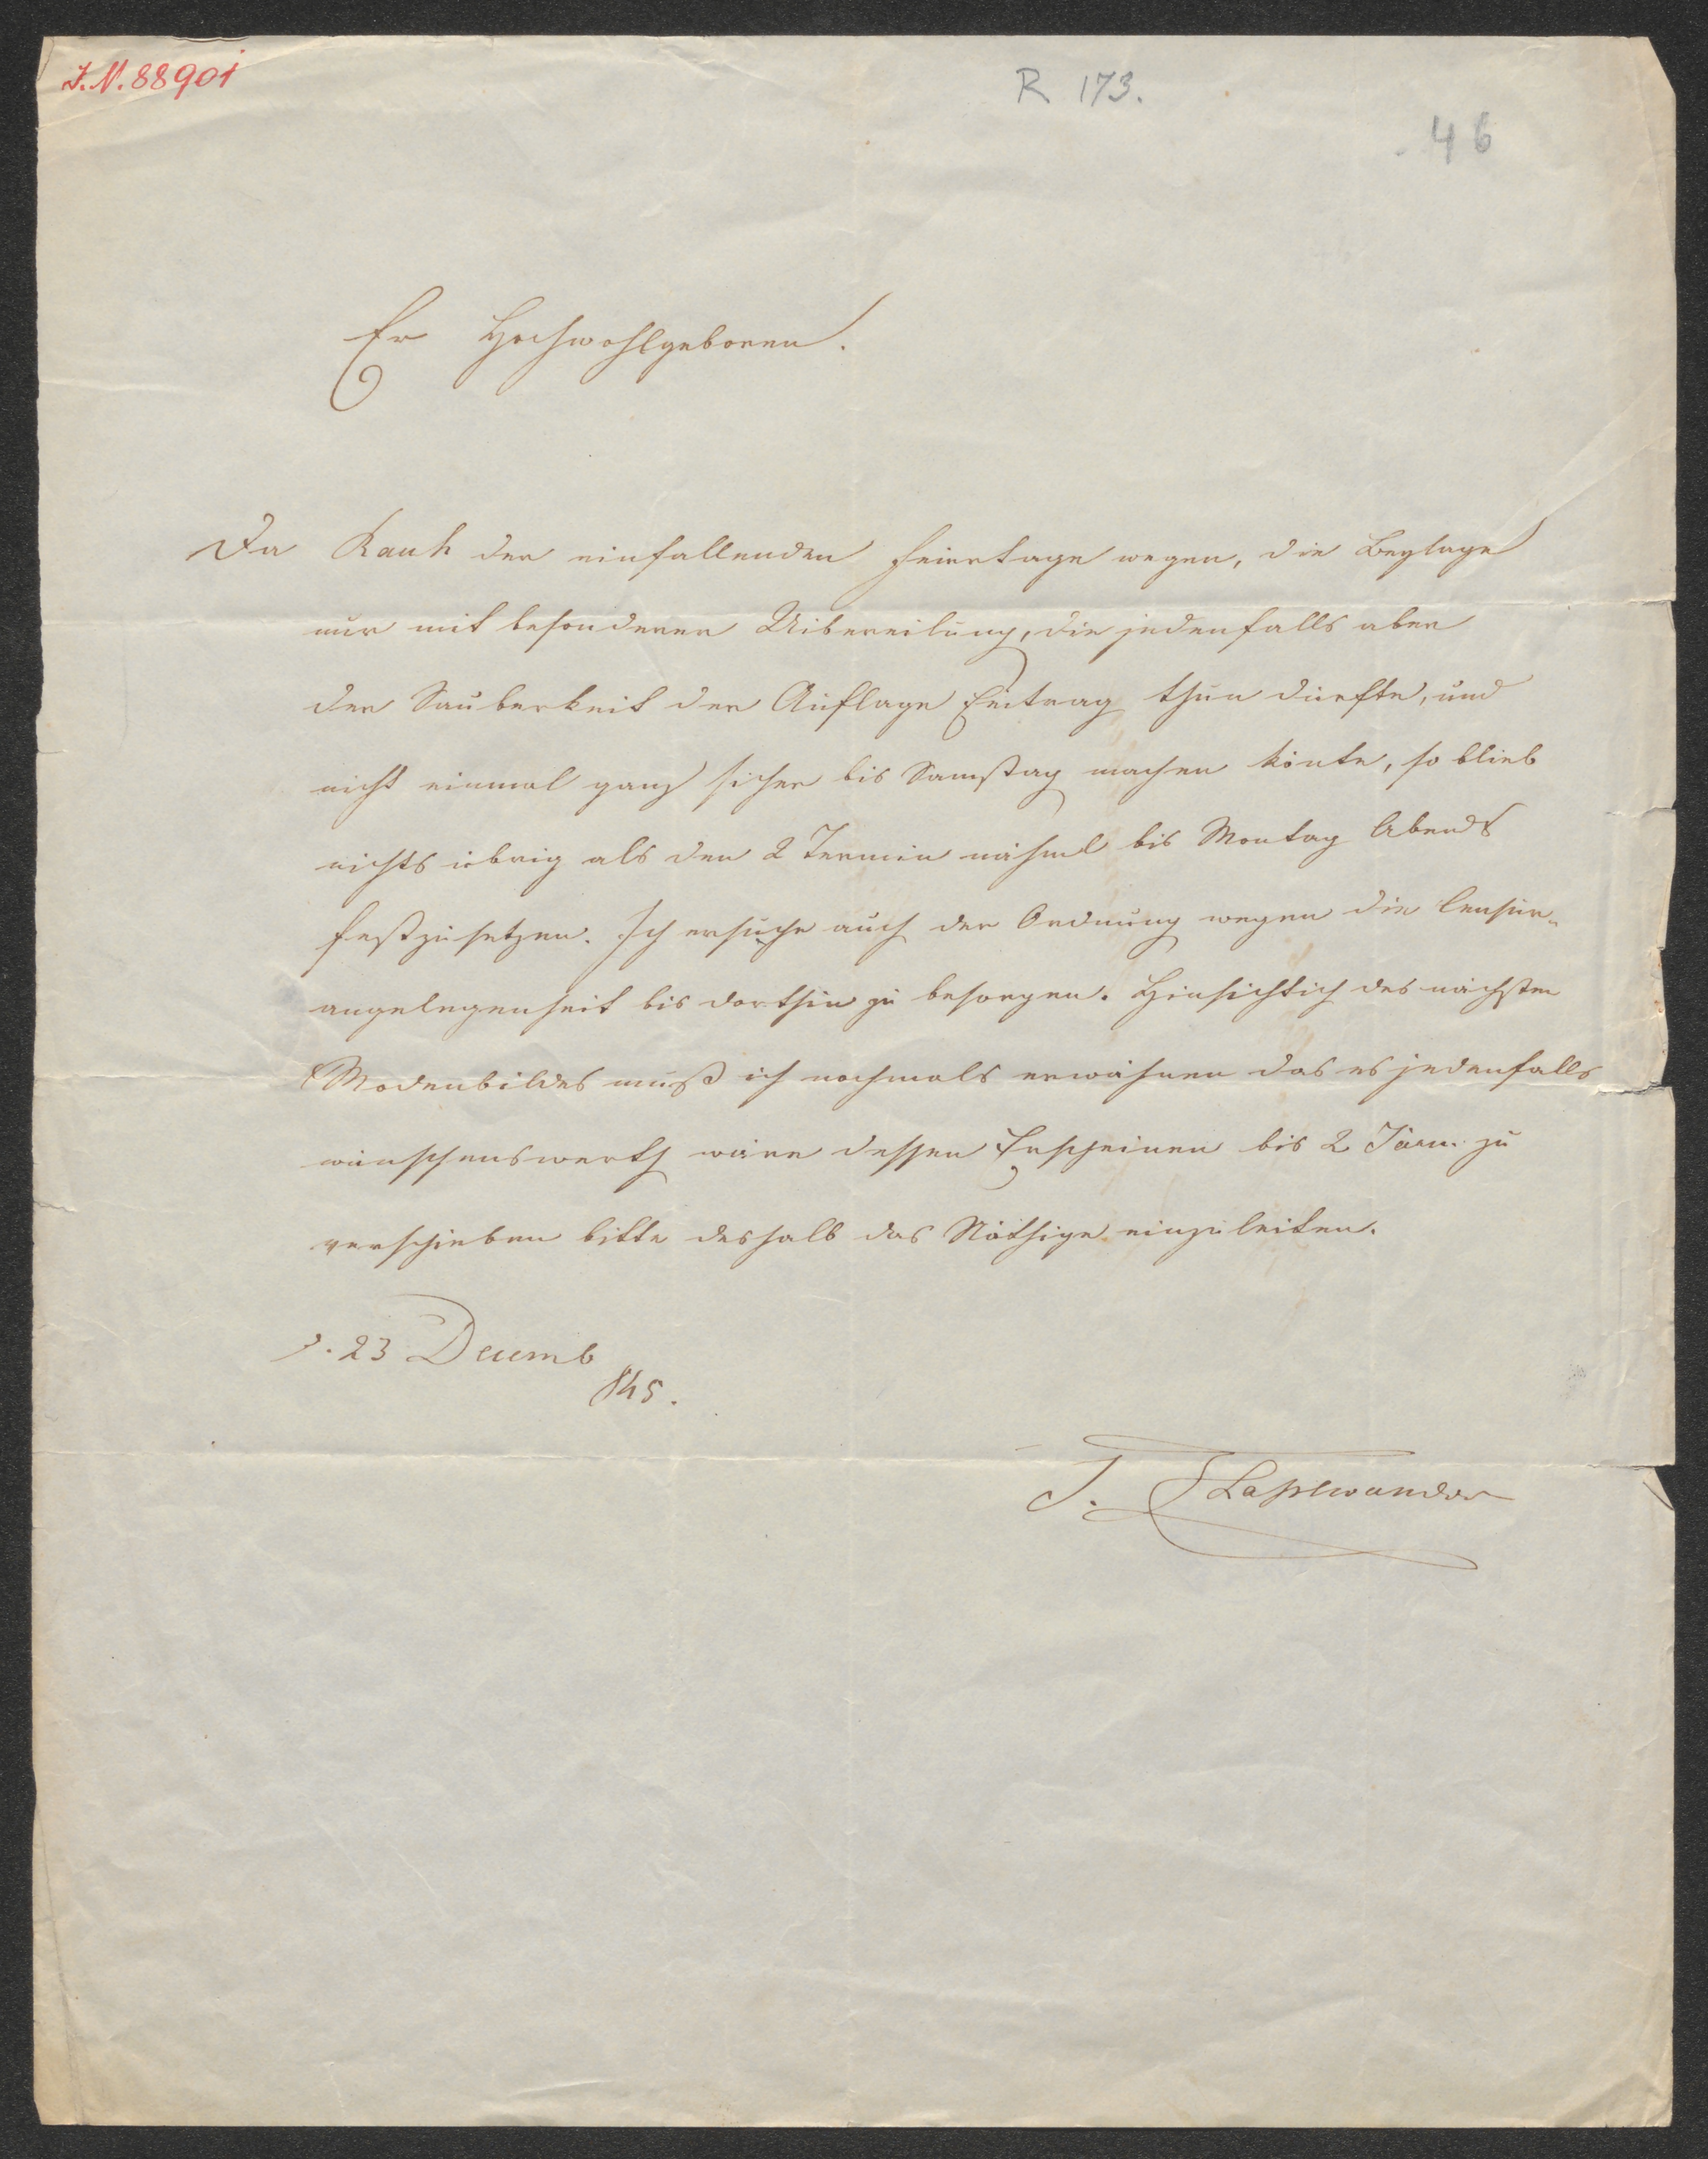 I.N. 88901
R 173.
46
Er Hochwohlgeboren.
Da Rauh der einfallenden Feiertage wegen, die Beylage
nur mit besonderer Uibereilung, die jedenfalls aber
der Sauberkeit der Auflage Eintrag thun dürfte, und
nicht einmal ganz sicher bis Samstag machen könte, so blieb
nichts übrig als den 2 Termin nähml bis Montag Abends
festzusetzen. Ich ersuche auch der Ordnung wegen die Censur-
angelegenheit bis dorthin zu besorgen. Hinsichtlich des nächsten
Modenbildes muß ich nochmals erwähnen das es jedenfalls
wünschenswerth wäre dessen Erscheinen bis 2 Jänn. zu
verschieben bitte deshalb das Nöthige einzuleiten.
d. 23 Decemb
845.
J.